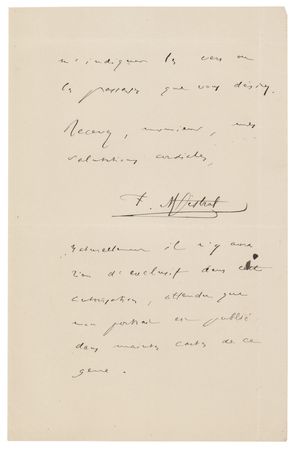 m'indiquer les vers ou
les passages que vous désirez.
Recevez, monsieur, mes
salutations cordiales,
F. Mistral
Naturellement il n'y aura
rien d'exclusif dans cette
autorisation, attendu que
mon portrait est publié
dans maintes cartes de ce
genre.